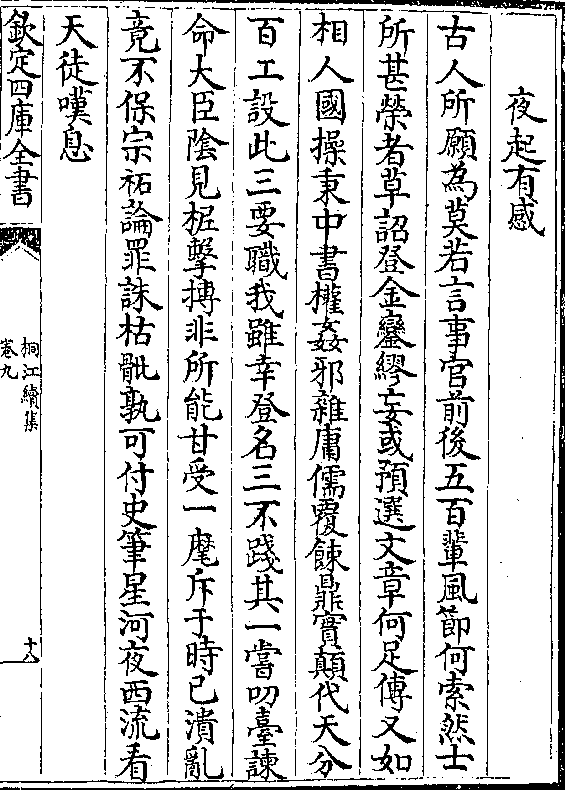 夜起有感
古人所願為莫若言事官前後五百輩風節何索然士
所甚榮者草詔登金鑾繆妄或預選文章何足傳又如
相人國操秉中書權姦邪雜庸儒覆餗鼎實顛代天分
百工設此三要職我雖幸登名三不踐其一嘗叨臺諫
命大臣陰見柅擊搏非所能甘受一麾斥于時已潰亂
竟不保宗祏論罪誅枯骴孰可付史筆星河夜西流看
天徒嘆息
欽定四庫全書
桐江續集
卷九
十八